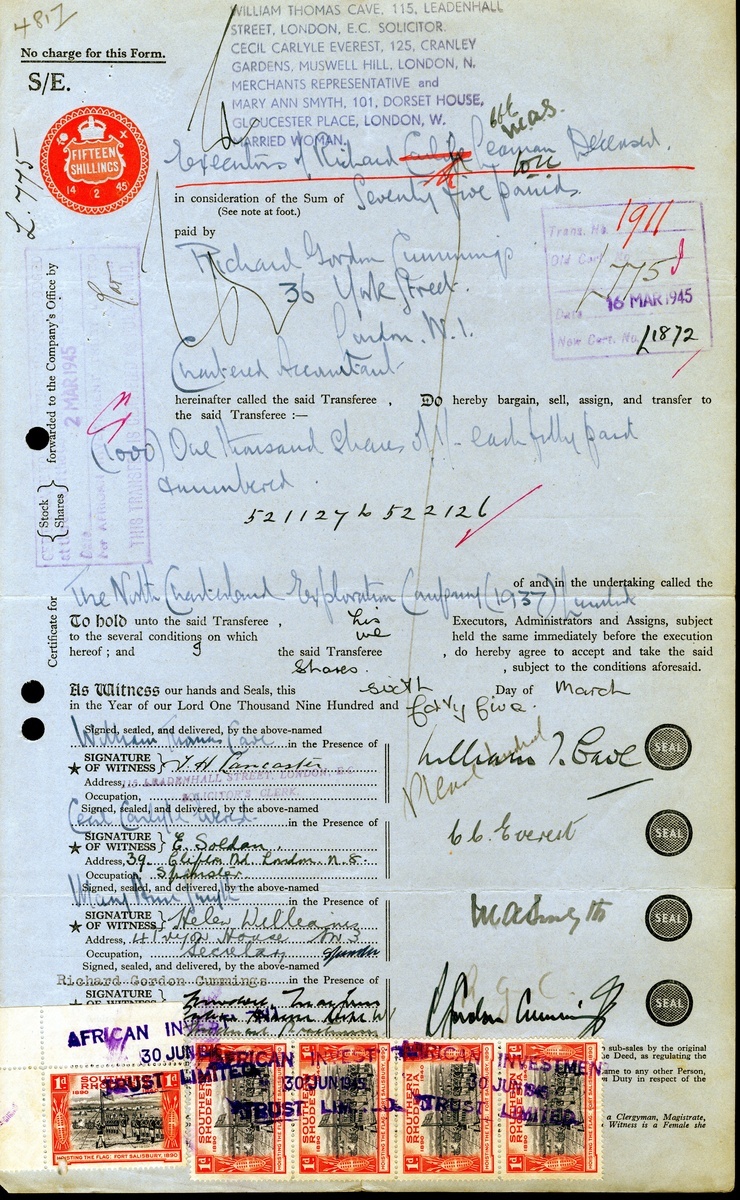 4817
No charge for this Form.
S/E.
WILLIAM THOMAS CAVE, 115, LEADENHALL
STREET, LONDON, E.C. SOLICITOR.
CECIL CARLYLE EVEREST, 125, CRANLEY
GARDENS, MUSWELL HILL, LONDON, N.
MERCHANTS REPRESENTATIVE and
MARY ANN SMYTH, 101, DORSET HOUSE,
GLOUCESTER PLACE, LONDON, W.
MARRIED WOMAN.
FIFTEEN
SHILLINGS
14 2 45
L.775
Executors of Richard Deceased.
in consideration of the Sum of Seventy five pounds
(See note at foot.)
paid by
Richard Gordon Cummings
36 York Street.
London. W.1.
Chartered Accountant
Trans. No. 1911
Old Cert. No. L775
Date 16 MAR 1945
New Cert. No. L1872
forwarded to the Company's Office by
2 MAR 1945
THIS TRANSFER IS
hereinafter called the said Transferee , Do hereby bargain, sell, assign, and transfer to
the said Transferee :—
(1000) One thousand shares of 1/- each fully paid
& numbered
521127 to 522126
Stock
Shares
Certificate for
of and in the undertaking called the
The North Charterland Exploration Company (1937) Limited
To hold unto the said Transferee , his Executors, Administrators and Assigns, subject
to the several conditions on which we held the same immediately before the execution
hereof ; and I the said Transferee , do hereby agree to accept and take the said
Shares. , subject to the conditions aforesaid.
As Witness our hands and Seals, this sixth Day of March
in the Year of our Lord One Thousand Nine Hundred and forty five.
Signed, sealed, and delivered, by the above-named
William Thomas Cave in the Presence of
William T. Cave
SEAL
SIGNATURE
OF WITNESS
Lancaster
Address, 115 LEADENHALL STREET, LONDON, E.C
Occupation, SOLICITOR'S CLERK.
Signed, sealed, and delivered, by the above-named
Cecil Carlyle Everest in the Presence of
C C Everest
SEAL
SIGNATURE
OF WITNESS
E. Soldan
Address, 39 Clifton Rd. London. N.8.
Occupation, Spinster
Signed, sealed, and delivered, by the above-named
Mary Ann Smyth in the Presence of
M A Smyth
SEAL
SIGNATURE
OF WITNESS
Helen Williams
Address, House NW3
Occupation, Secretary Spinster
Signed, sealed, and delivered, by the above-named
Richard Gordon Cummings in the Presence of
R. G. C.
Gordon Cummings
SEAL
SIGNATURE
OF WITNESS
sub-sales by the original
he Deed, as regulating the
ame to any other Person,
n Duty in respect of the
a Clergyman, Magistrate,
Witness is a Female she
AFRICAN INVESTMENT
30 JUN 1945
TRUST LIMITED.
AFRICAN INVESTMENT
30 JUN 1945
TRUST LIMITED.
AFRICAN INVESTMENT
30 JUN 1945
TRUST LIMITED.
1d SOUTHERN RHODESIA 1890
HOISTING THE FLAG: FORT SALISBURY, 1890
1d SOUTHERN RHODESIA 1890
HOISTING THE FLAG: FORT SALISBURY, 1890
1d SOUTHERN RHODESIA 1890
HOISTING THE FLAG: FORT SALISBURY, 1890
1d SOUTHERN RHODESIA 1890
HOISTING THE FLAG: FORT SALISBURY, 1890
1d SOUTHERN RHODESIA 1890
HOISTING THE FLAG: FORT SALISBURY, 1890